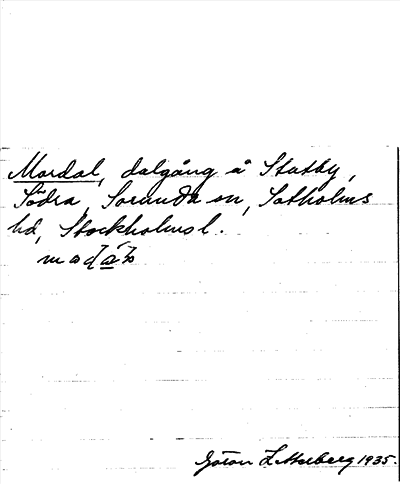 Mordal, dalgång å Stutby,
Södra, Sorunda sn, Sotholms
hd, Stockholms l.
Göran Zetterberg 1935.